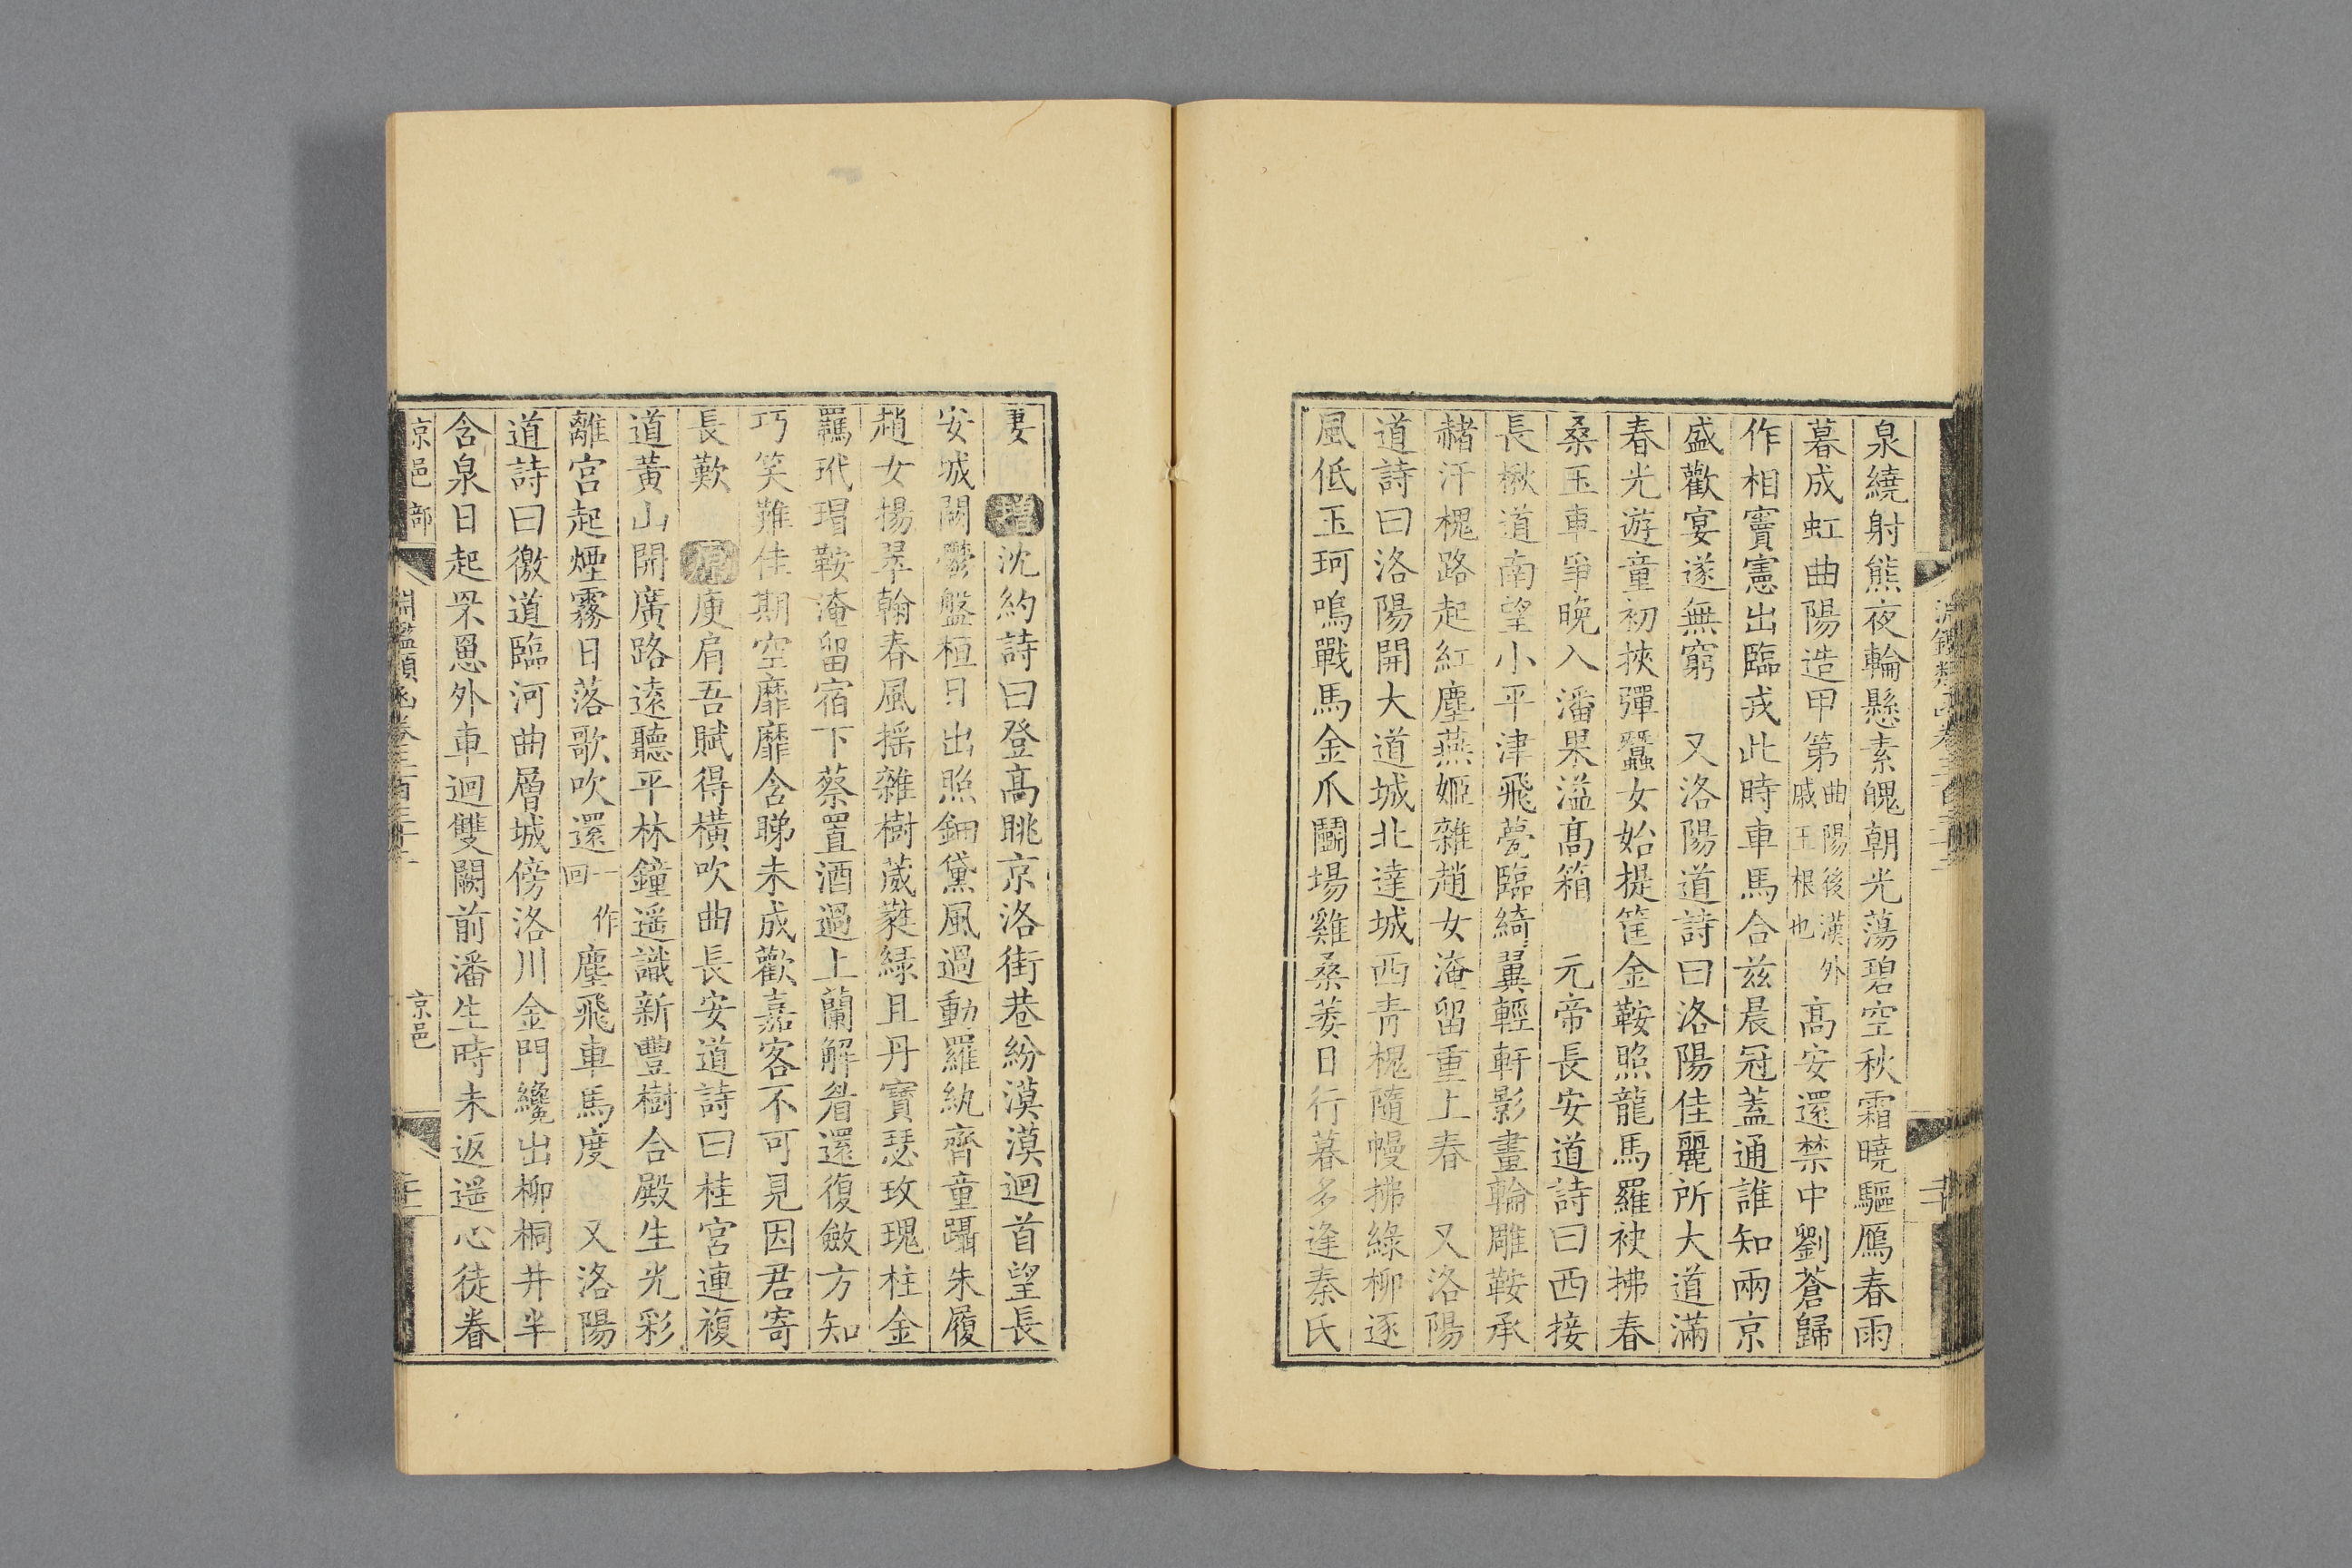 泉繞射熊夜輪懸素魄朝光蕩碧空秋霜曉驅鴈春雨
暮成虹曲陽造甲第曲陽後漢外戚王根也高安還禁中劉蒼歸
作相竇憲出臨戎此時車馬合兹晨冠蓋通誰知兩京
盛歡宴遂無窮 又洛陽道詩曰洛陽佳麗所大道滿
春光遊童初挾彈蠶女始提筐金鞍照龍馬羅袂拂春
桑玉車爭晚入潘果溢髙箱 元帝長安道詩曰西接
長楸道南望小平津飛甍臨綺翼輕軒影畫輪雕鞍承
赭汗槐路起紅塵燕姬雜趙女淹留重上春 又洛陽
道詩曰洛陽開大道城北達城西青槐隨幔拂綠柳逐
風低玉珂鳴戰馬金爪鬭場雞桑萎日行暮多逢秦氏
妻 增沈約詩曰登髙眺京洛街巷紛漠漠迴首望長
安城闕鬱盤桓日出照鈿黛風過動羅紈齊童躡朱履
趙女揚翠翰春風摇雜樹葳蕤緑且丹寶瑟玫瑰柱金
羈玳瑁鞍淹留宿下蔡置酒過上蘭解眉還復斂方知
巧笑難佳期空靡靡含睇未成歡嘉客不可見因君寄
長歎 原庾肩吾賦得横吹曲長安道詩曰桂宮連複
道黄山開廣路逺聽平林鐘遥識新豐樹合殿生光彩
離宮起煙霧日落歌吹還一作回塵飛車馬度 又洛陽
道詩曰徼道臨河曲層城傍洛川金門纔出柳桐井半
含泉日起罘罳外車迴雙闕前潘生時未返遥心徒眷
京邑部
淵鑑類函卷三百三十三
京邑